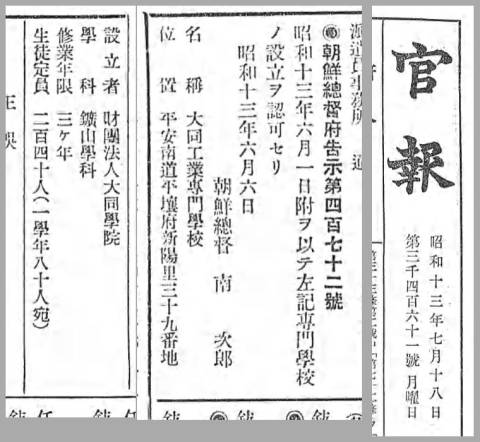 官報
昭和十三年七月十八日
第三千四百六十一號 月曜日
◉朝鮮總督府告示第四百七十二號
昭和十三年六月一日附ヲ以テ左記專門學校
ノ設立ヲ認可セリ
昭和十三年六月六日
朝鮮總督 南 次郎
名稱 大同工業專門學校
位置 平安南道平壤府新陽里三十九番地
設立者 財團法人大同學院
學科 鑛山學科
修業年限 三ケ年
生徒定員 二百四十人(一學年八十人宛)
正誤